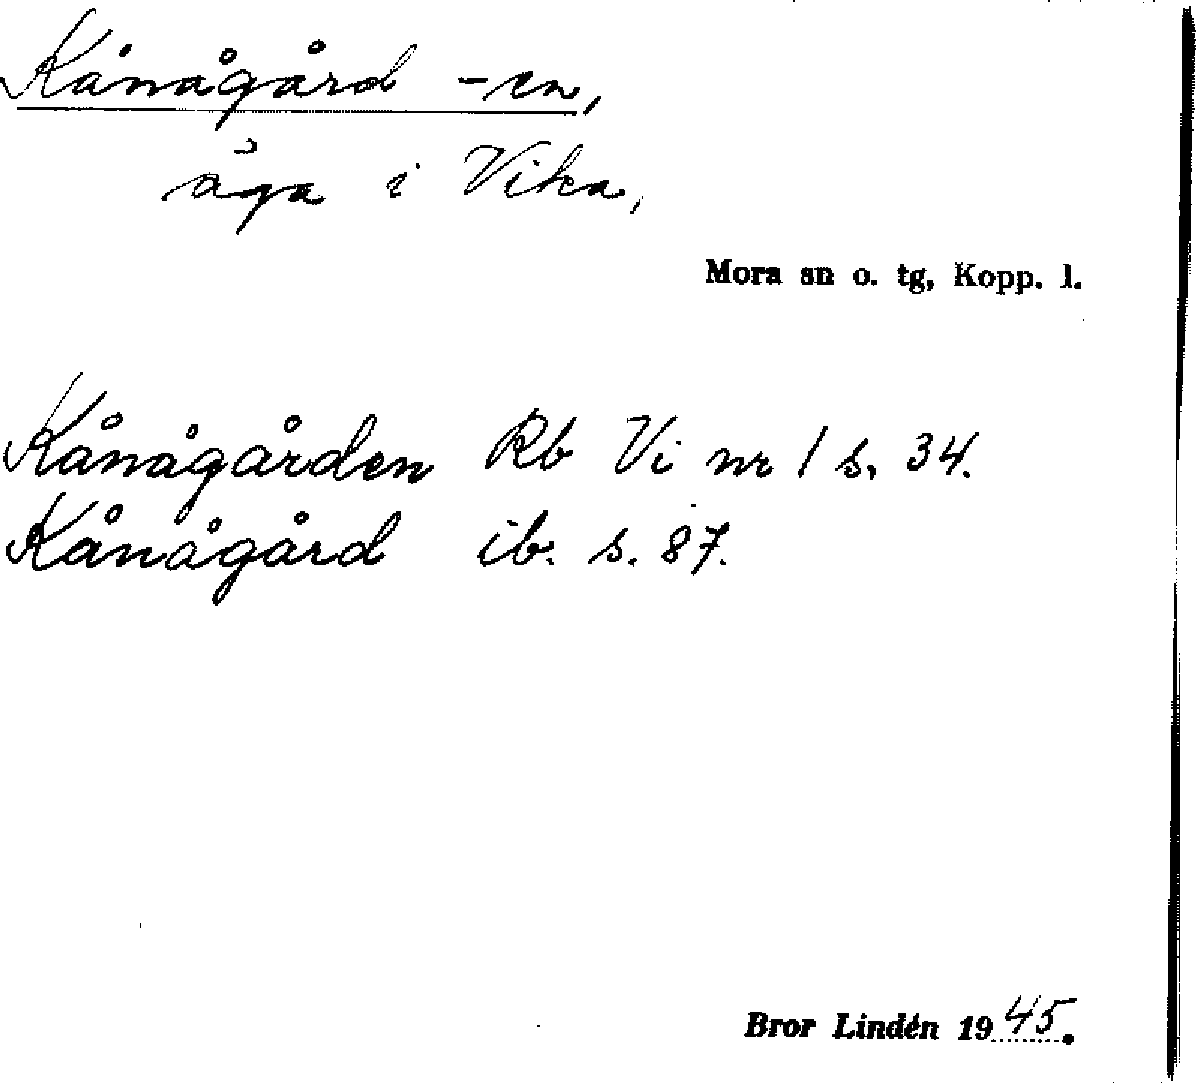 Kånågård -en,
äga i Vika,
Mora sn o. tg, Kopp. l.
Kånågården Rb Vi nr 1 s. 34.
Kånågård ib. s. 87.
Bror Lindén 1945.